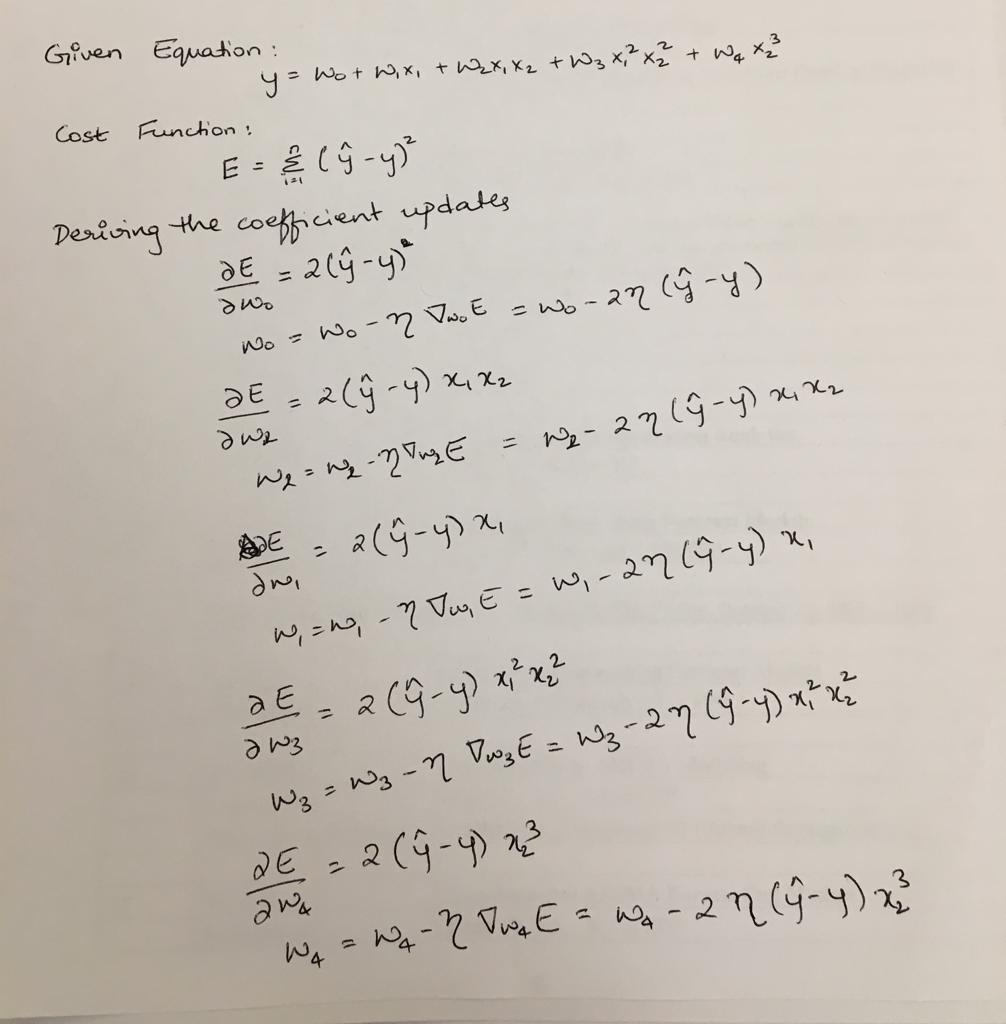 Given Equation:
y = w₀ + w₁x₁ + w₂x₁x₂ + w₃x₁²x₂² + w₄x₂³
Cost Function:
E = Σᵢ₌₁ⁿ (ŷ - y)²
Deriving the coefficient updates
∂E/∂w₀ = 2(ŷ - y)
w₀ = w₀ - η ∇w₀E = w₀ - 2η (ŷ - y)
∂E/∂w₂ = 2(ŷ - y) x₁x₂
w₂ = w₂ - η∇w₂E = w₂ - 2η (ŷ - y) x₁x₂
∂E/∂w₁ = 2(ŷ - y) x₁
w₁ = w₁ - η ∇w₁E = w₁ - 2η (ŷ - y) x₁
∂E/∂w₃ = 2(ŷ - y) x₁²x₂²
w₃ = w₃ - η ∇w₃E = w₃ - 2η (ŷ - y) x₁²x₂²
∂E/∂w₄ = 2(ŷ - y) x₂³
w₄ = w₄ - η ∇w₄E = w₄ - 2η (ŷ - y) x₂³